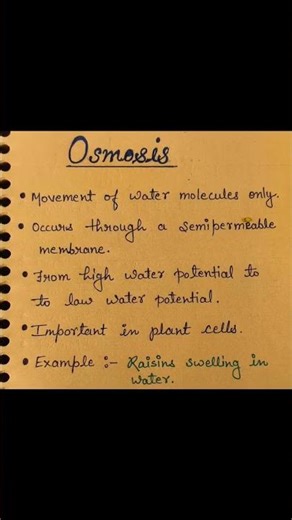 Osmosis
• Movement of water molecules only.
• Occurs through a semipermeable
membrane.
• From high water potential to
to law water potential.
• Important in plant cells.
• Example :- Raisins swelling in
water.